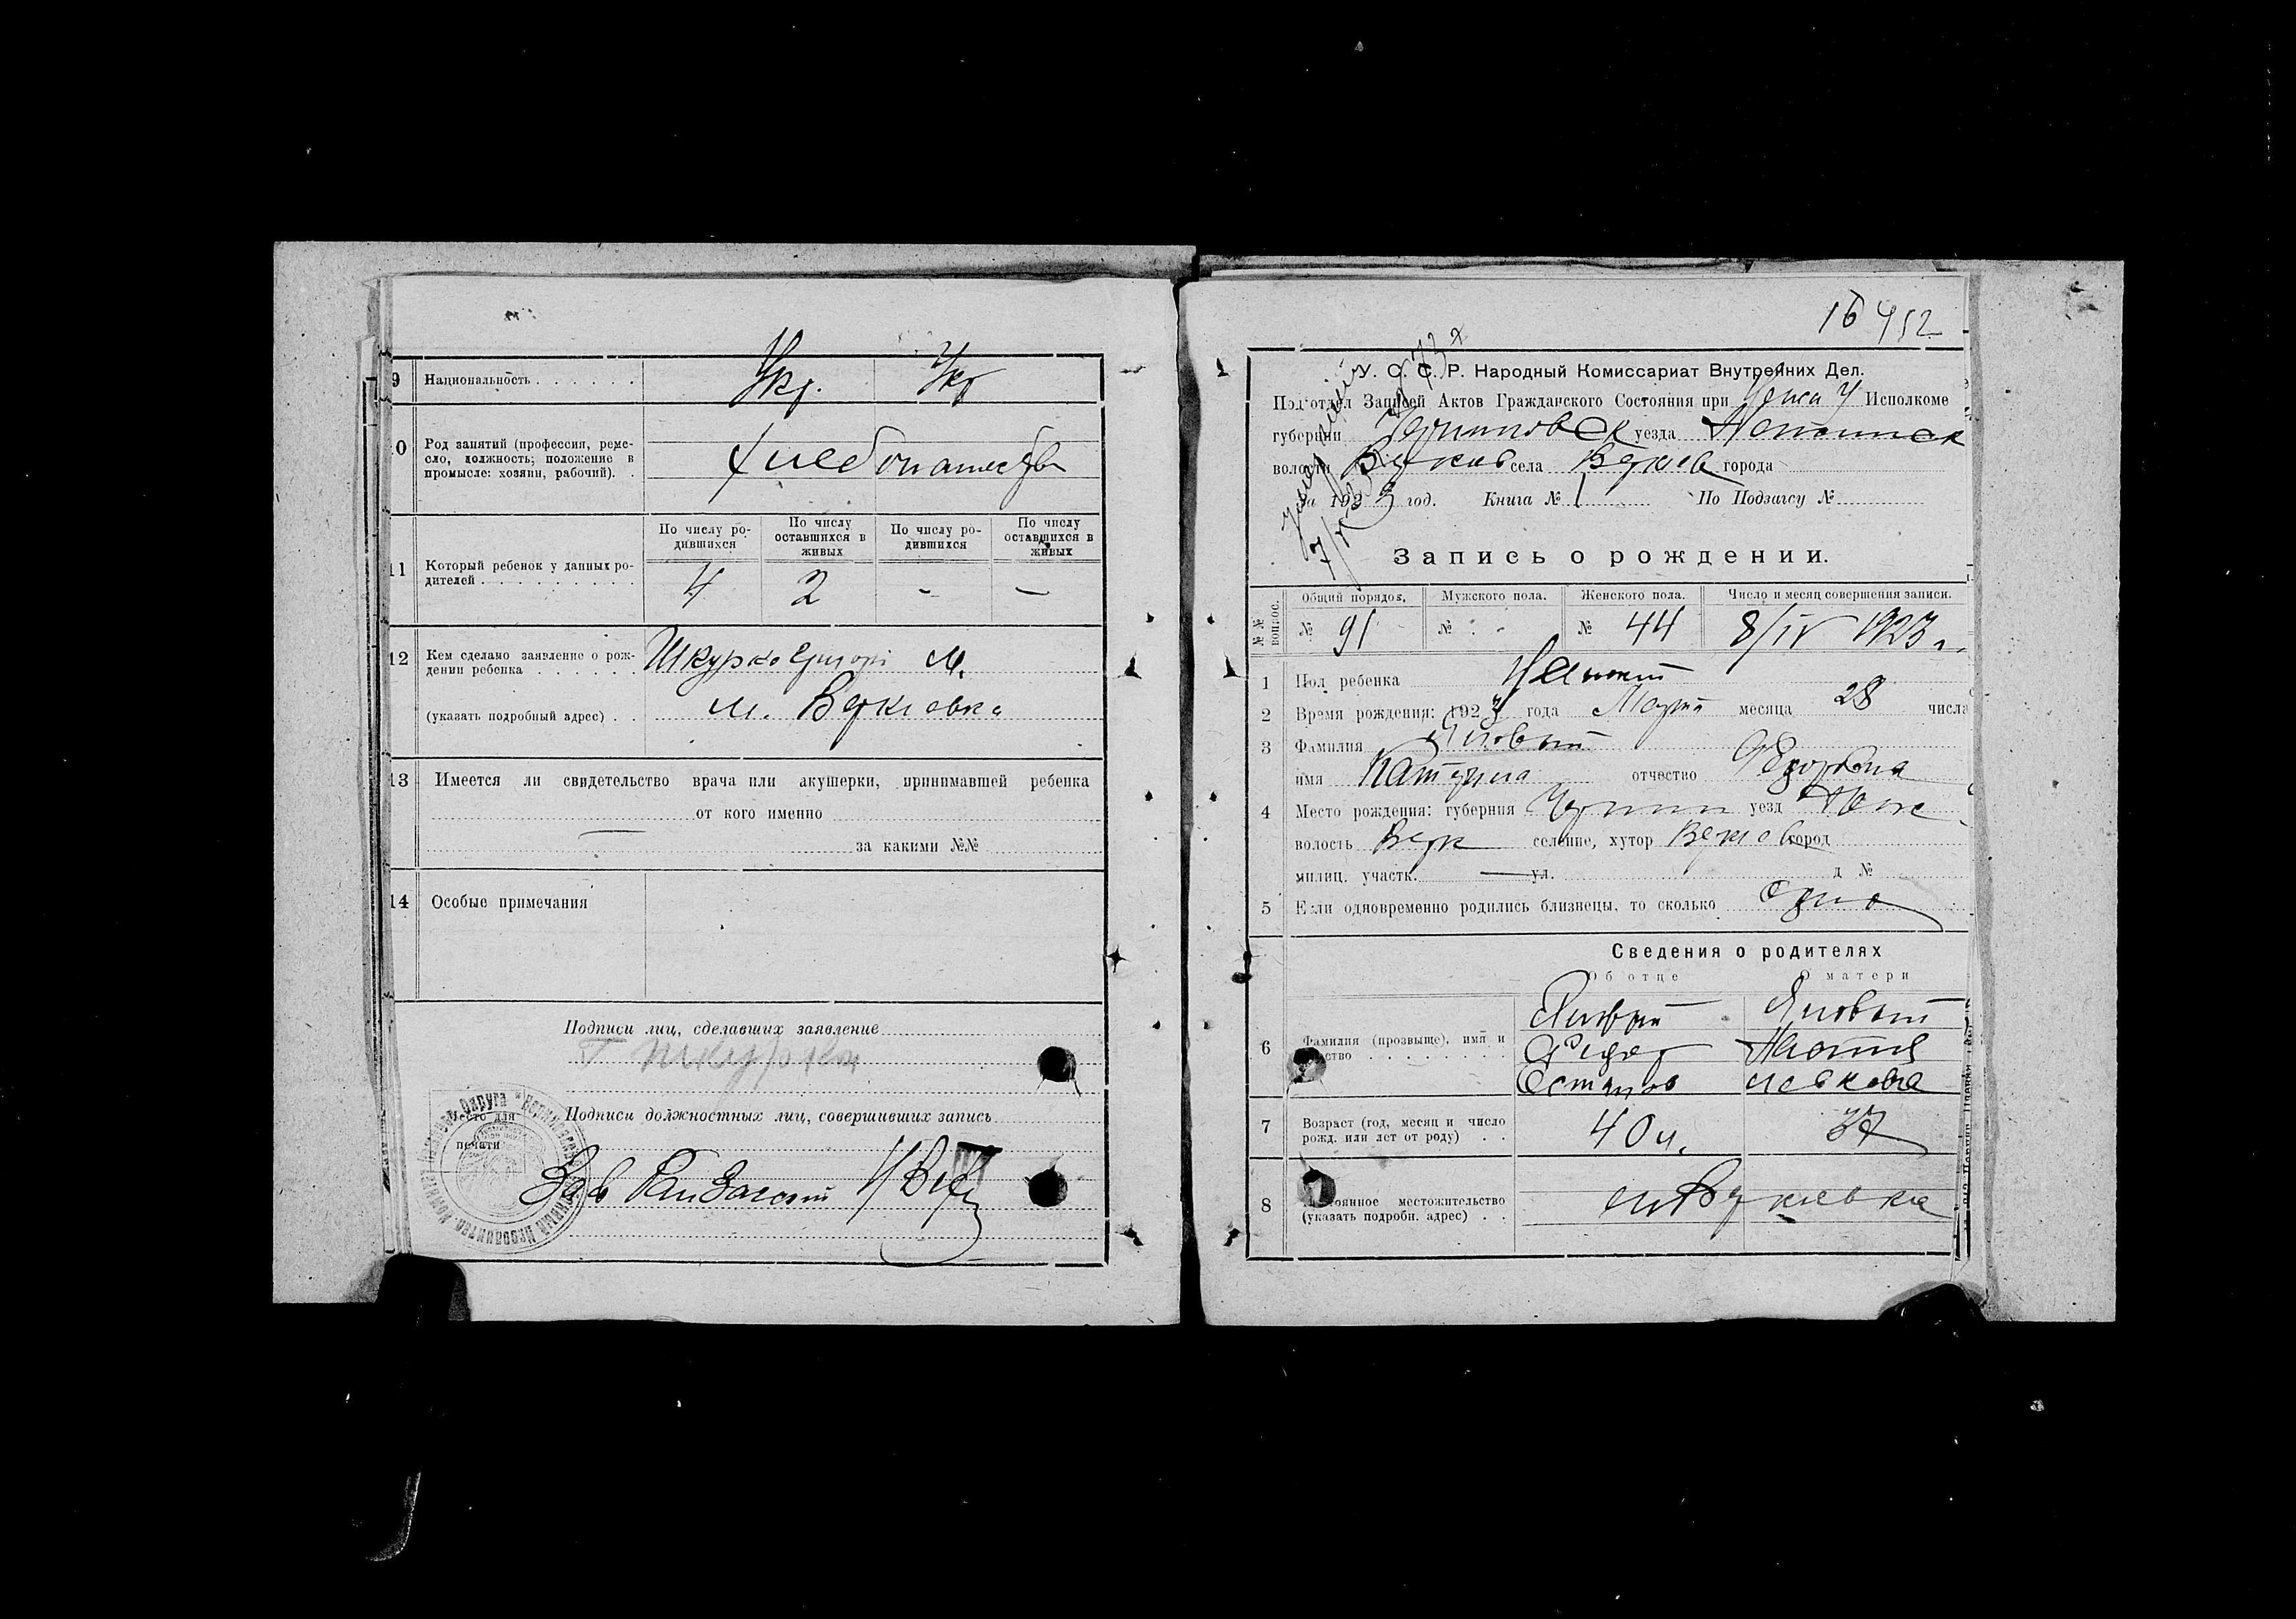 9 Национальность . . . . . . Укр. Укр
10 Род занятий (профессия, реме-
сло, должность; положение в
промысле: хозяин, рабочий). .
хлебопашество
11 Который ребенок у данных ро-
дителей . . . . . . . . . .
По числу ро-
дившихся
По числу
оставшихся в
живых
По числу ро-
дившихся
По числу
оставшихся в
живых
4 2 - -
12 Кем сделано заявление о рож-
дении ребенка . . . . . .
Шкурко Григорі М.
(указать подробный адрес) . . м. Веркиевка
13 Имеется ли свидетельство врача или акушерки, принимавшей ребенка
от кого именно
— за какими №№
14 Особые примечания
Подписи лиц, сделавших заявление
Г Шкурка
Подписи должностных лиц, совершивших запись
Место для
печати
Зав
16 452
У. С. С. Р. Народный Комиссариат Внутренних Дел.
Под'отдел Записей Актов Гражданского Состояния при Исполкоме
губернии Черниговск уезда Нежинск
волости Веркиев села Веркиев города
За 1923 год. Книга № 1 По Подзагсу №
Запись о рождении.
№ № вопрос. Общий порядок. Мужского пола. Женского пола. Число и месяц совершения записи.
№ 91 № - № 44 8/IV 1923 г.
1 Пол ребенка Женский
2 Время рождения: 1923 года Марта месяца 28 числа
3 Фамилия Яловый
имя Катерина отчество Федоровна
4 Место рождения: губерния Черниг уезд Неж
волость Верк селение, хутор Веркиев город
милиц. участк. — ул. д №
5 Если одновременно родились близнецы, то сколько одно
Сведения о родителях
Об отце О матери
6 Фамилия (прозвище), имя и
отчество . . . . . . . . .
Яловый Яловый
Федор Настя
Остапов
7 Возраст (год, месяц и число
рожд. или лет от роду) . .
40 л. 37
8 Постоянное местожительство
(указать подробн. адрес) . .
м Веркиевка